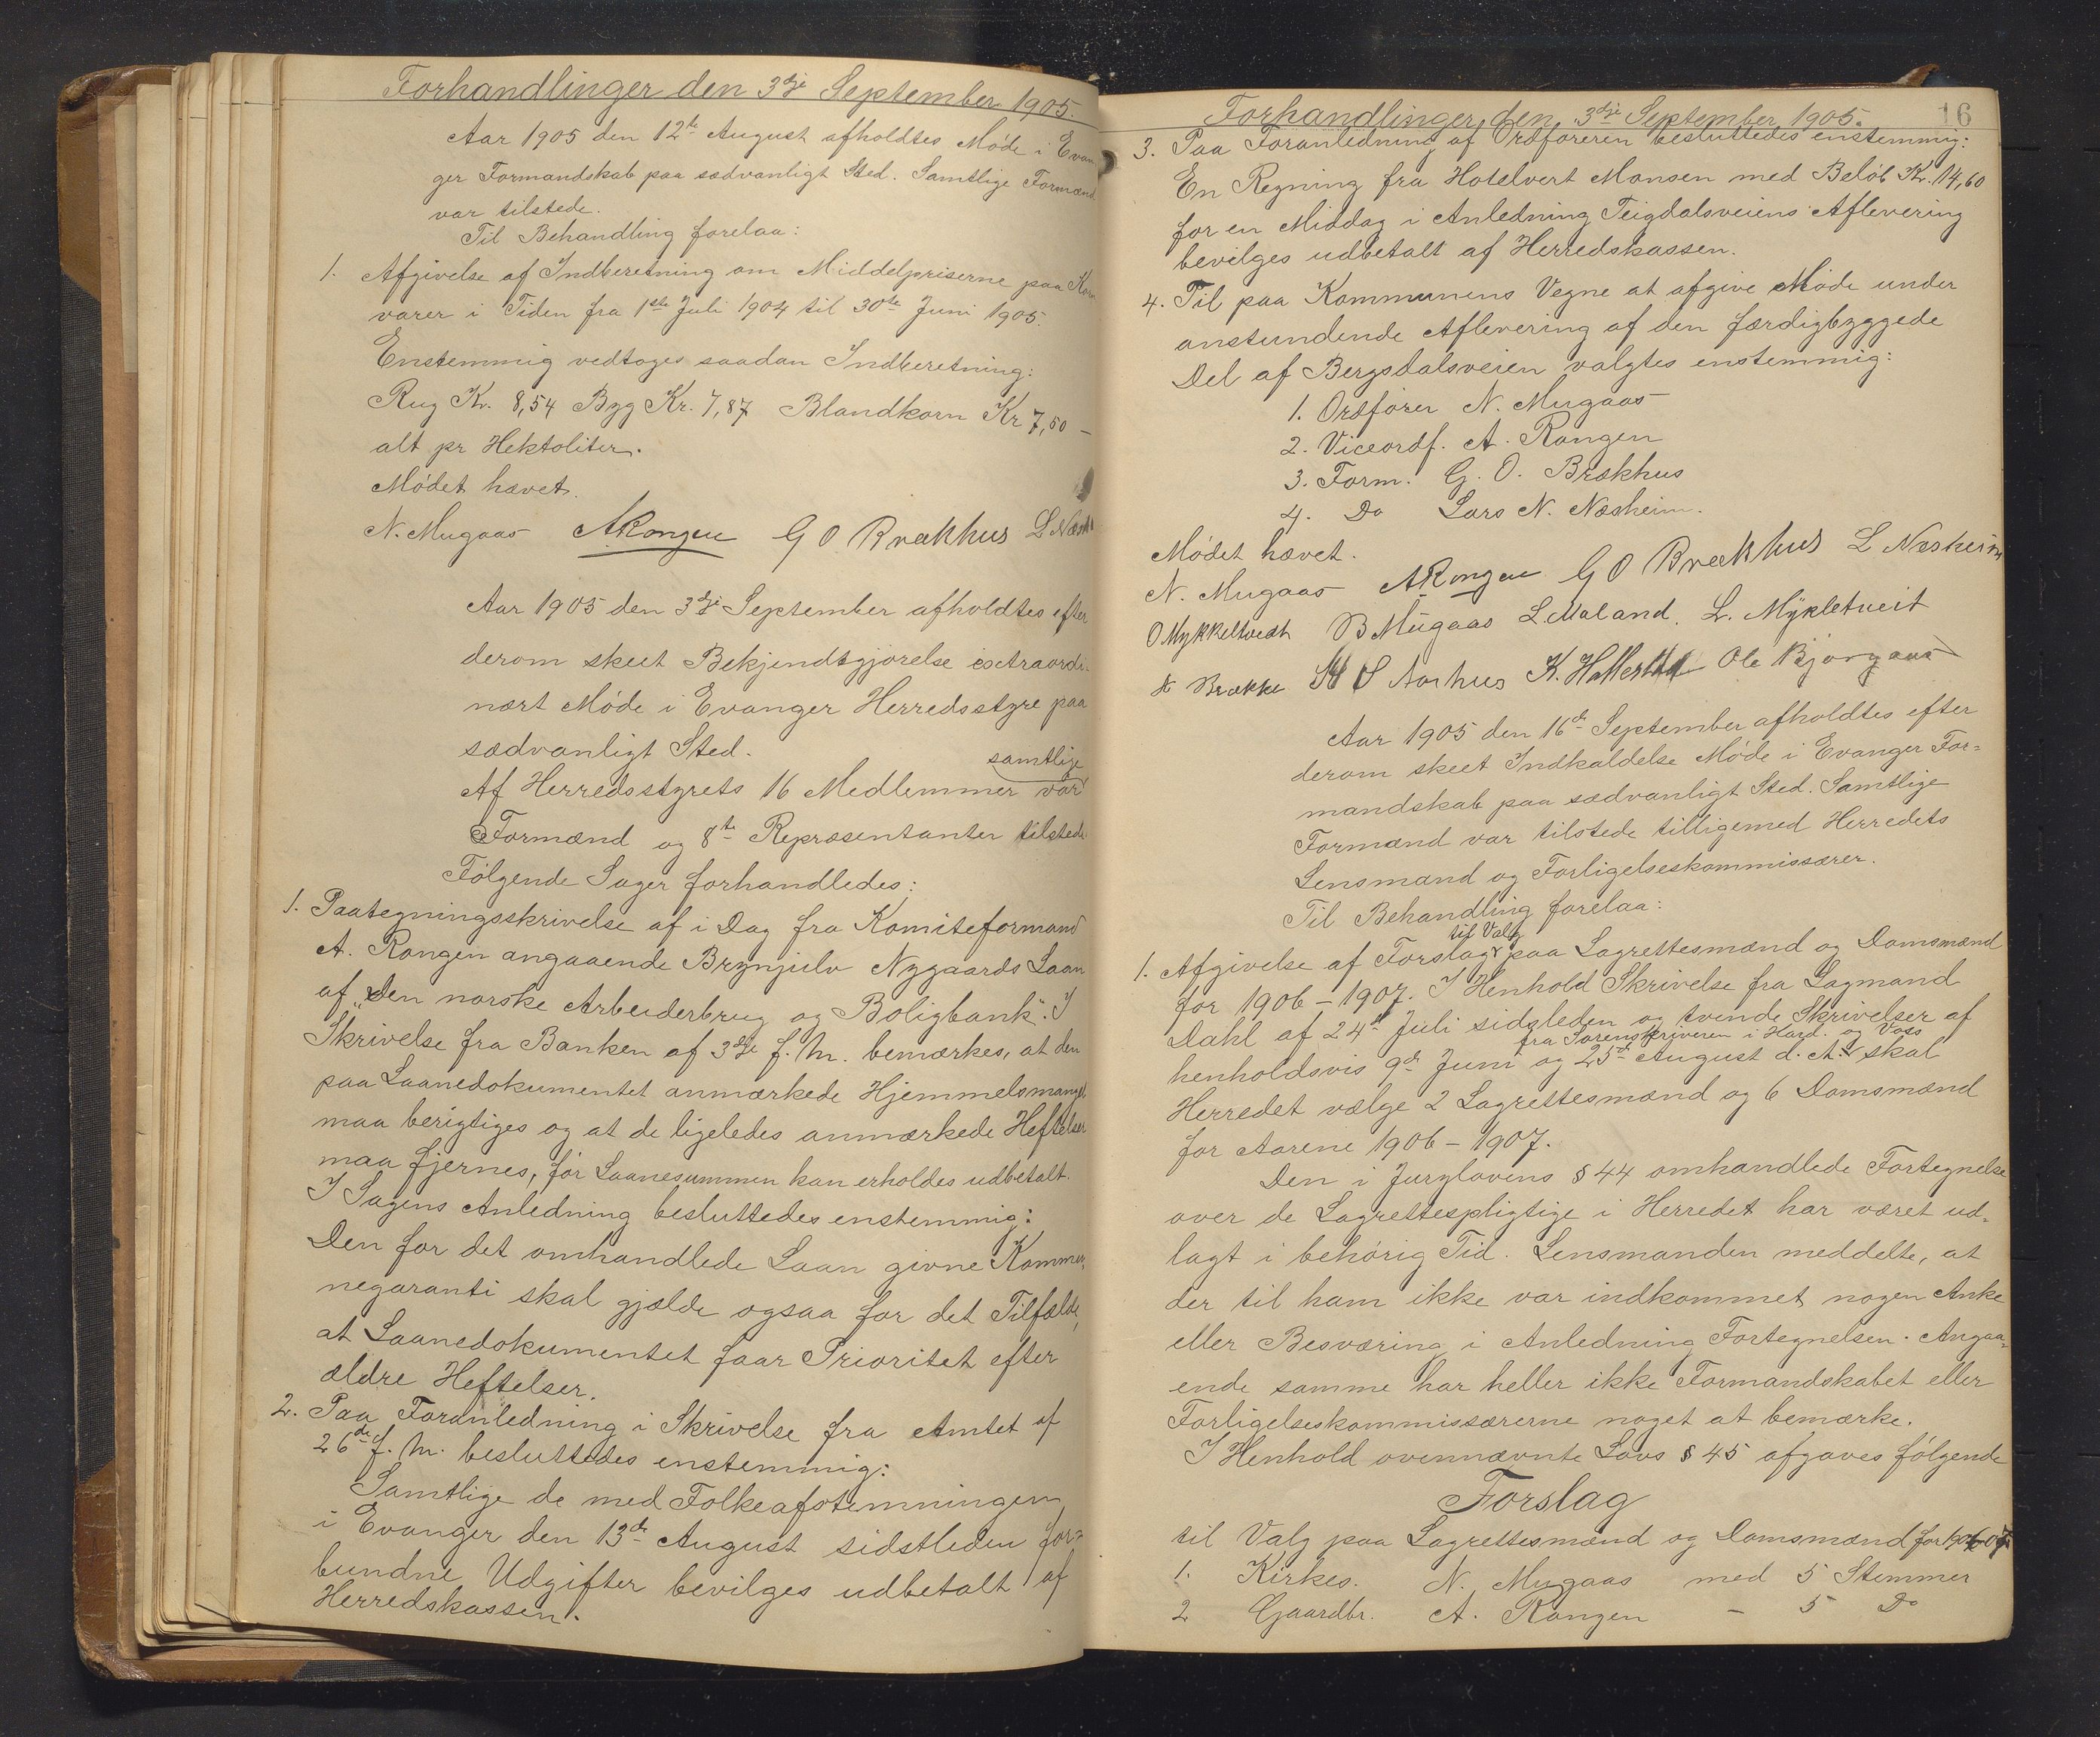 Forhandlinger den 3dje September 1905.
Aar 1905 den 12te August afholdtes Møde i Evan
ger Formandskab paa sædvanligt Sted. Samtlige Formænd
var tilstede.
Til Behandling forelaa:
1. Afgivelse af Indberetning om Middelpriserne paa Korn
varer i Tiden fra 1ste Juli 1904 til 30te Juni 1905.
Enstemmig vedtoges saadan Indberetning:
Rug Kr. 8,54 Byg Kr. 7,87 Blandkorn Kr 7,50 –
alt pr Hektoliter.
Mødet hævet.
N. Mugaas ARongen G O Brækhus L Næsh
Aar 1905 den 3dje September afholdtes efter
derom skeet Bekjendtgjørelse extraordi-
nært Møde i Evanger Herredsstyre paa
sædvanligt Sted.
samtlige
Af Herredsstyrets 16 Medlemmer var
Formænd og 8te Repræsentanter tilstede.
Følgende Sager forhandledes:
1. Paategningsskrivelse af i Dag fra Komiteformand
A. Rongen angaaende Brynjulv Nygaards Laan
af "Den norske Arbeiderbrug og Boligbank". I
Skrivelse fra Banken af 3dje f. M. bemærkes, at den
paa Laanedokumentet anmærkede Hjemmelsmangel
maa berigtiges og at de ligeledes anmærkede Heftelser
maa fjernes, før Laanesummen kan erholdes udbetalt.
I Sagens Anledning besluttedes enstemmig:
Den for det omhandlede Laan givne Kommu-
negaranti skal gjælde ogsaa for det Tilfælde,
at Laanedokumentet faar Prioritet efter
ældre Heftelser.
2. Paa Foranledning i Skrivelse fra Amtet af
26de f. M. besluttedes enstemmig:
Samtlige de med Folkeafstemningen
i Evanger den 13de August sidstleden for-
bundne Udgifter bevilges udbetalt af
Herredskassen.
Forhandlinger den 3dje September 1905. 16
3. Paa Foranledning af Ordføreren besluttedes enstemmig:
En Regning fra Hotelvert Monsen med Beløb Kr. 14,60
for en Middag i Anledning Teigdalsveiens Aflevering
bevilges udbetalt af Herredskassen.
4. Til paa Kommunens Vegne at afgive Møde under
anstundende Aflevering af den færdigbyggede
Del af Bergsdalsveien valgtes enstemmig:
1. Ordfører N. Mugaas
2. Viceordf. A. Rongen
3. Form. G. O. Brækhus
4. Do Lars N. Næsheim.
Mødet hævet.
N. Mugaas ARongen G O Brækhus L Næsheim
O Mykkeltvedt B Mugaas L. Maland. L. Mykletveit
Brække S Aarhus K. Ole Bjørgaas
Aar 1905 den 16de September afholdtes efter
derom skeet Indkaldelse Møde i Evanger For-
mandskab paa sædvanligt Sted. Samtlige
Formænd var tilstede tilligemed Herredets
Lensmand og Forligelseskommissærer.
Til Behandling forelaa:
til Valg
1. Afgivelse af Forslag paa Lagrettesmænd og Domsmænd
for 1906 – 1907. I Henhold Skrivelse fra Lagmand
Dahl af 24de Juli sidstleden og tvende Skrivelser af
fra Sorenskriveren i Hard. og Voss
henholdsvis 9de Juni og 25de August d. A. skal
Herredet vælge 2 Lagrettesmænd og 6 Domsmænd
for Aarene 1906 – 1907.
Den i Jurylovens § 44 omhandlede Fortegnelse
over de Lagrettespligtige i Herredet har været ud-
lagt i behørig Tid. Lensmanden meddelte, at
der til ham ikke var indkommet nogen Anke
eller Besværing i Anledning Fortegnelsen. Angaa-
ende samme har heller ikke Formandskabet eller
Forligelseskommissærerne noget at bemærke.
I Henhold ovennævnte Lovs § 45 afgaves følgende
Forslag
til Valg paa Lagrettesmænd og Domsmænd for 1906-07
1. Kirkes. N. Mugaas med 5 Stemmer
2 Gaardbr. A. Rongen – 5 Do